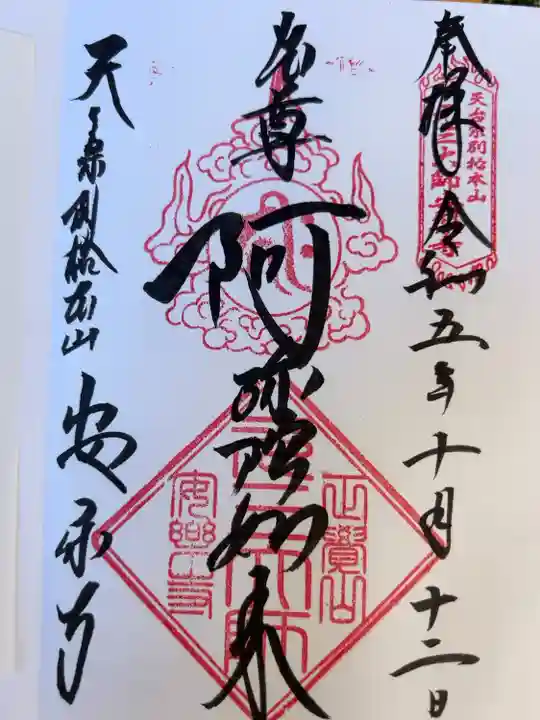 奉拝 令和五年十月十二日
天台宗別格本山
本尊 阿弥陀如来
正覺山
安樂寺
天台宗別格本山 安楽寺